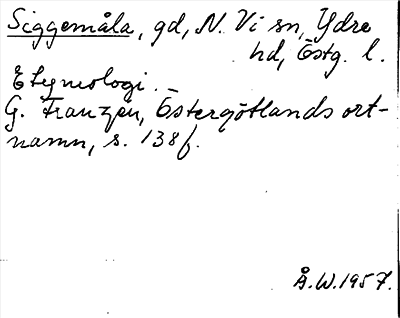 Siggemåla, gd, N. Vi sn, Ydre
hd, Östg. l.
Etymologi.
G. Franzén, Östergötlands ort-
namn, s. 138f.
Å.W.1957.